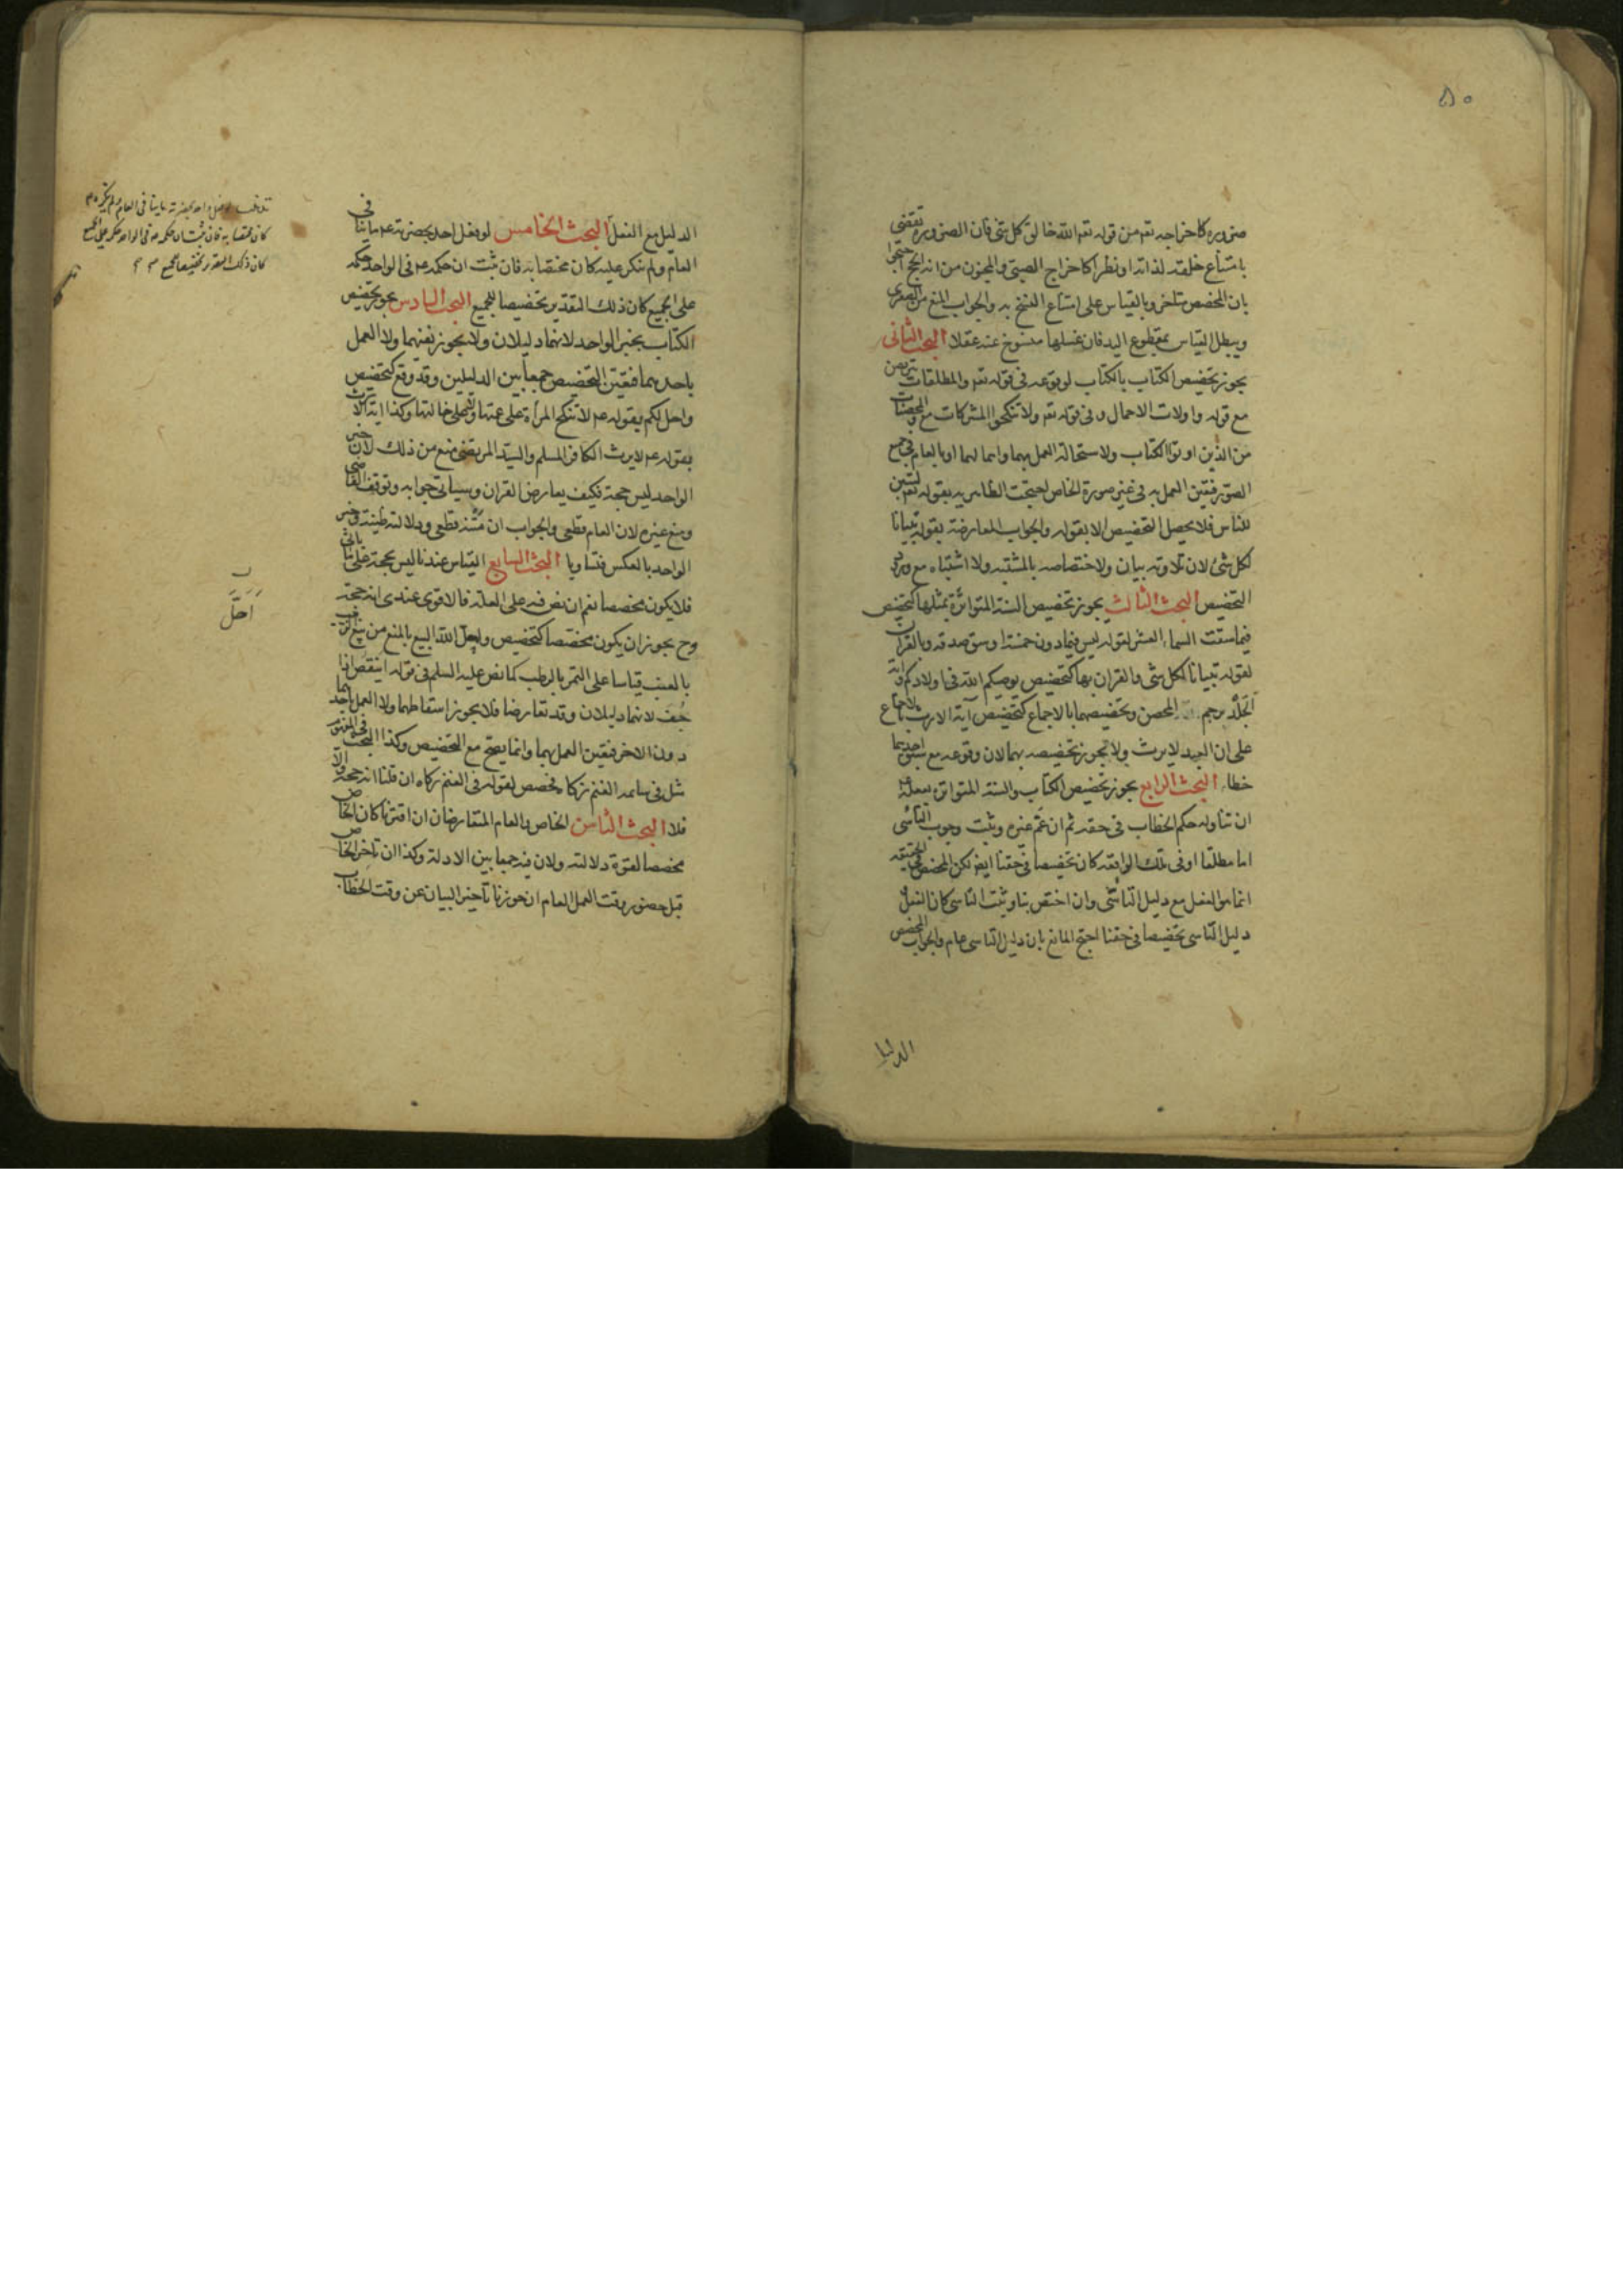 ٥٠
ضرورة كاخراجه تعم من قوله تعم الله خالق كل شئ فان الضرورة تقتضى
بامتناع خلقه لذاته او نظرا كاخراج الصبى والمجنون من اية الحج احتجوا
بان المخصص متاخر وبالقياس على امتناع النسخ به والجواب المنع من الصغرى
ويبطل القياس بمقطوع اليد فان غسلها منسوخ عنه عقلا البحث الثانى
يجوز تخصيص الكتاب بالكتاب لوقوعه فى قوله تعم والمطلقات يتربصن
مع قوله واولات الاحمال وفى قوله تعم ولا تنكحوا المشركات مع والمحصنات
من الذين اوتوا الكتاب ولاستحالة العمل بهما واهمالهما او بالعام فى جميع
الصور فيتعين العمل به فى غير صورة الخاص احتجت الظاهرية بقوله تعم لتبين
للناس فلا يحصل التخصيص الا بقوله والجواب المعارضة بقوله تبيانا
لكل شئ لان تلاوته بيان ولاختصاصه بالمشتبه ولا اشتباه مع ورود
التخصيص البحث الثالث يجوز تخصيص السنة المتواترة بمثلها كتخصيص
فيما سقت السماء العشر لقوله ليس فيما دون خمسة اوسق صدقة وبالقران
لقوله تبيانا لكل شئ والقران بها كتخصيص يوصيكم الله فى اولادكم واية
الجلد برجم المحصن وتخصيصهما بالاجماع كتخصيص آية الارث بالاجماع
على ان العبد لا يرث ولا تجوز تخصيصه بهما لان وقوعه مع سبق احدهما
خطاء البحث الرابع يجوز تخصيص الكتاب والسنة المتواترة بفعله ع
ان تناوله حكم الخطاب فى حقه ثم ان عم غيره وثبت وجوب التأسى
اما مطلقا او فى تلك الواقعة كان تخصيصا فى حقنا ايضا لكن المخصص فى الحقيقة
انما هو الفعل مع دليل التأسى وان اختص بنا وثبت التاسى كان الفعل مع
دليل التاسى تخصيصا فى حقنا احتج المانع بان دليل التاسى عام والجواب المخصص
الدليل
الدليل مع الفعل البحث الخامس لو فعل احد بحضرته ع ما ينافى
العام ولم ينكر عليه كان مختصا به فان ثبت ان حكمه ع فى الواحد حكمه
على الجميع كان ذلك التقدير تخصيصا للجميع البحث السادس يجوز تخصيص
الكتاب بخبر الواحد لانهما دليلان ولا يجوز نفيهما ولا العمل
باحدهما فتعين التخصيص جمعا بين الدليلين وقد وقع كتخصيص
واحل لكم بقوله ع لا تنكح المرأة على عمتها ولا على خالتها وكذا اية الارث
بقوله ع لا يرث الكافر المسلم والسيد المرتضى منع من ذلك لان خبر
الواحد ليس حجة فكيف يعارض القران وسياتى جوابه وتوقف القاضى
ومنع غيره لان العام قطعى والجواب ان متنه قطعى ودلالته ظنية وخبر
الواحد بالعكس فتساويا البحث السابع القياس عندنا ليس بحجة على ما ياتى
فلا يكون مخصصا نعم ان نص فيه على العلة فالاقوى عندى انه حجة
وح يجوز ان يكون مخصصا كتخصيص واحل الله البيع بالمنع من بيع الزبيب
بالعنب قياسا على التمر بالرطب كما نص عليه السلم فى قوله اينقص اذا
جف لانهما دليلان وقد تعارضا فلا يجوز اسقاطهما ولا العمل باحدهما
دون الاخر فيتعين العمل بهما وانما يصح مع التخصيص وكذا البحث فى المفهوم
مثل فى سائمة الغنم زكاة مخصص لقوله فى الغنم زكاة ان قلنا انه حجة والا
فلا البحث الثامن الخاص والعام المتعارضان ان اقترنا كان الخاص
مخصصا لقوة دلالته ولان فيه جمعا بين الادلة وكذا ان تاخر الخاص
قبل حضور وقت العمل العام ان جوزنا تاخير البيان عن وقت الخطاب
كان مختصا به فان ثبت ان حكمه ص فى الواحد حكمه على الجميع
كان ذلك التقرير تخصيصا للجميع
احل